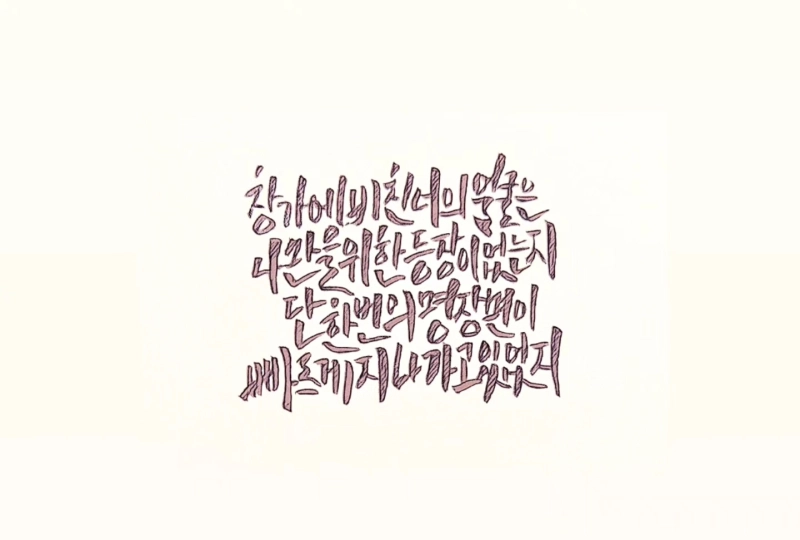 창가에 비친 너의 얼굴은
나만을 위한 등장이었는지
단 한번의 명장면이
빠르게 지나가고 있었지